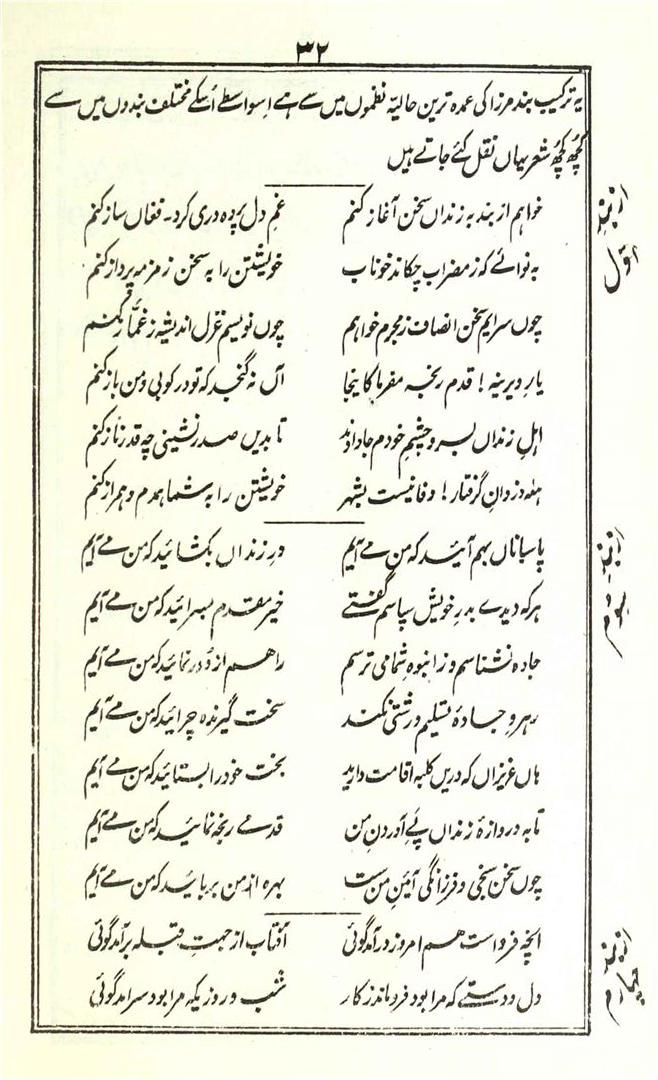 ۳۲
یہ ترکیب بند مرزا کی عمدہ ترین حالیہ نظموں میں سے ہے اسواسطے اُسکے مختلف بندوں میں سے
کچھ کچھ شعر یہاں نقل کئے جاتے ہیں
از بند اوّل
خواہم از بند بہ زنداں سخن آغاز کنم غمِ دل پردہ دری کرد۔ فغاں ساز کنم
بہ نوائے کہ ز مضراب چکاند خوناب خویشتن را بہ سخن زمزمہ پرداز کنم
چوں سرایم سخن انصاف ز مجرم خواہم چوں نویسم غزل اندیشہ ز غمّاز کنم
یارِ دیرینہ! قدم رنجہ مفرما کاینجا آں نہ گنجد کہ تو در کوبی و من باز کنم
اہلِ زنداں بسر و چشمِ خودم جا دادند تا بدیں صدر نشینی چہ قدر ناز کنم
ہلہ دزدانِ گرفتار! وفا نیست بشہر خویشتن را بہ شما ہمدم و ہمراز کنم
از بند سوم
پاسباناں بہم آئید کہ من مے آیم درِ زنداں بکشائید کہ من مے آیم
ہر کہ دیدے بدرِ خویش سپاسم گفتے خیر مقدم بسرائید کہ من مے آیم
جادہ نشناسم و ز انبوہِ شما می ترسم راہم از دور نمائید کہ من مے آیم
رہروِ جادۂ تسلیم درشتی نکند سخت گیرندہ چرائید کہ من مے آیم
ہاں عزیزاں کہ دریں کلبہ اقامت دارید بخت خود را بستائید کہ من مے آیم
تا بہ دروازۂ زنداں پئے آوردنِ من قدمے رنجہ نمائید کہ من مے آیم
چوں سخن سنجی و فرزانگی آئینِ من ست بہرہ از من بربائید کہ من مے آیم
از بند چہارم
آنچہ فردا ست ہم امروز در آمد گوئی آفتاب از جہتِ قبلہ برآمد گوئی
دل و دستے کہ مرا بود فرو ماند ز کار شب و روزیکہ مرا بود سر آمد گوئی